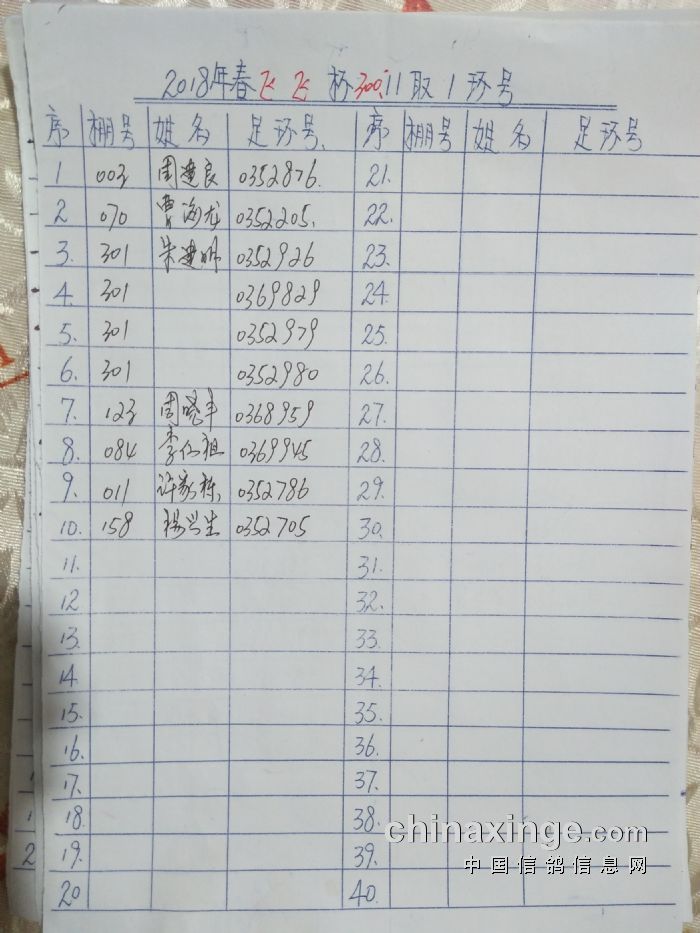 2018年春飞飞杯300:11取1环号
序 棚号 姓名 足环号 序 棚号 姓名 足环号
1 003 周建良 0352876. 21.
2 070 曹海龙 0352205. 22.
3. 301 朱建明 0352926 23.
4. 301 0369829 24.
5. 301 0352979 25.
6. 301 0352980 26.
7. 123 周晓丰 0368959 27.
8. 084 李仁祖 0369945 28.
9. 011 许家栋 0352786 29.
10. 158 杨兴生 0352705 30.
11. 31.
12 32.
13. 33.
14. 34.
15. 35.
16. 36.
17. 37.
18. 38.
19. 39.
20 40.
chinaxinge.com
中国信鸽信息网